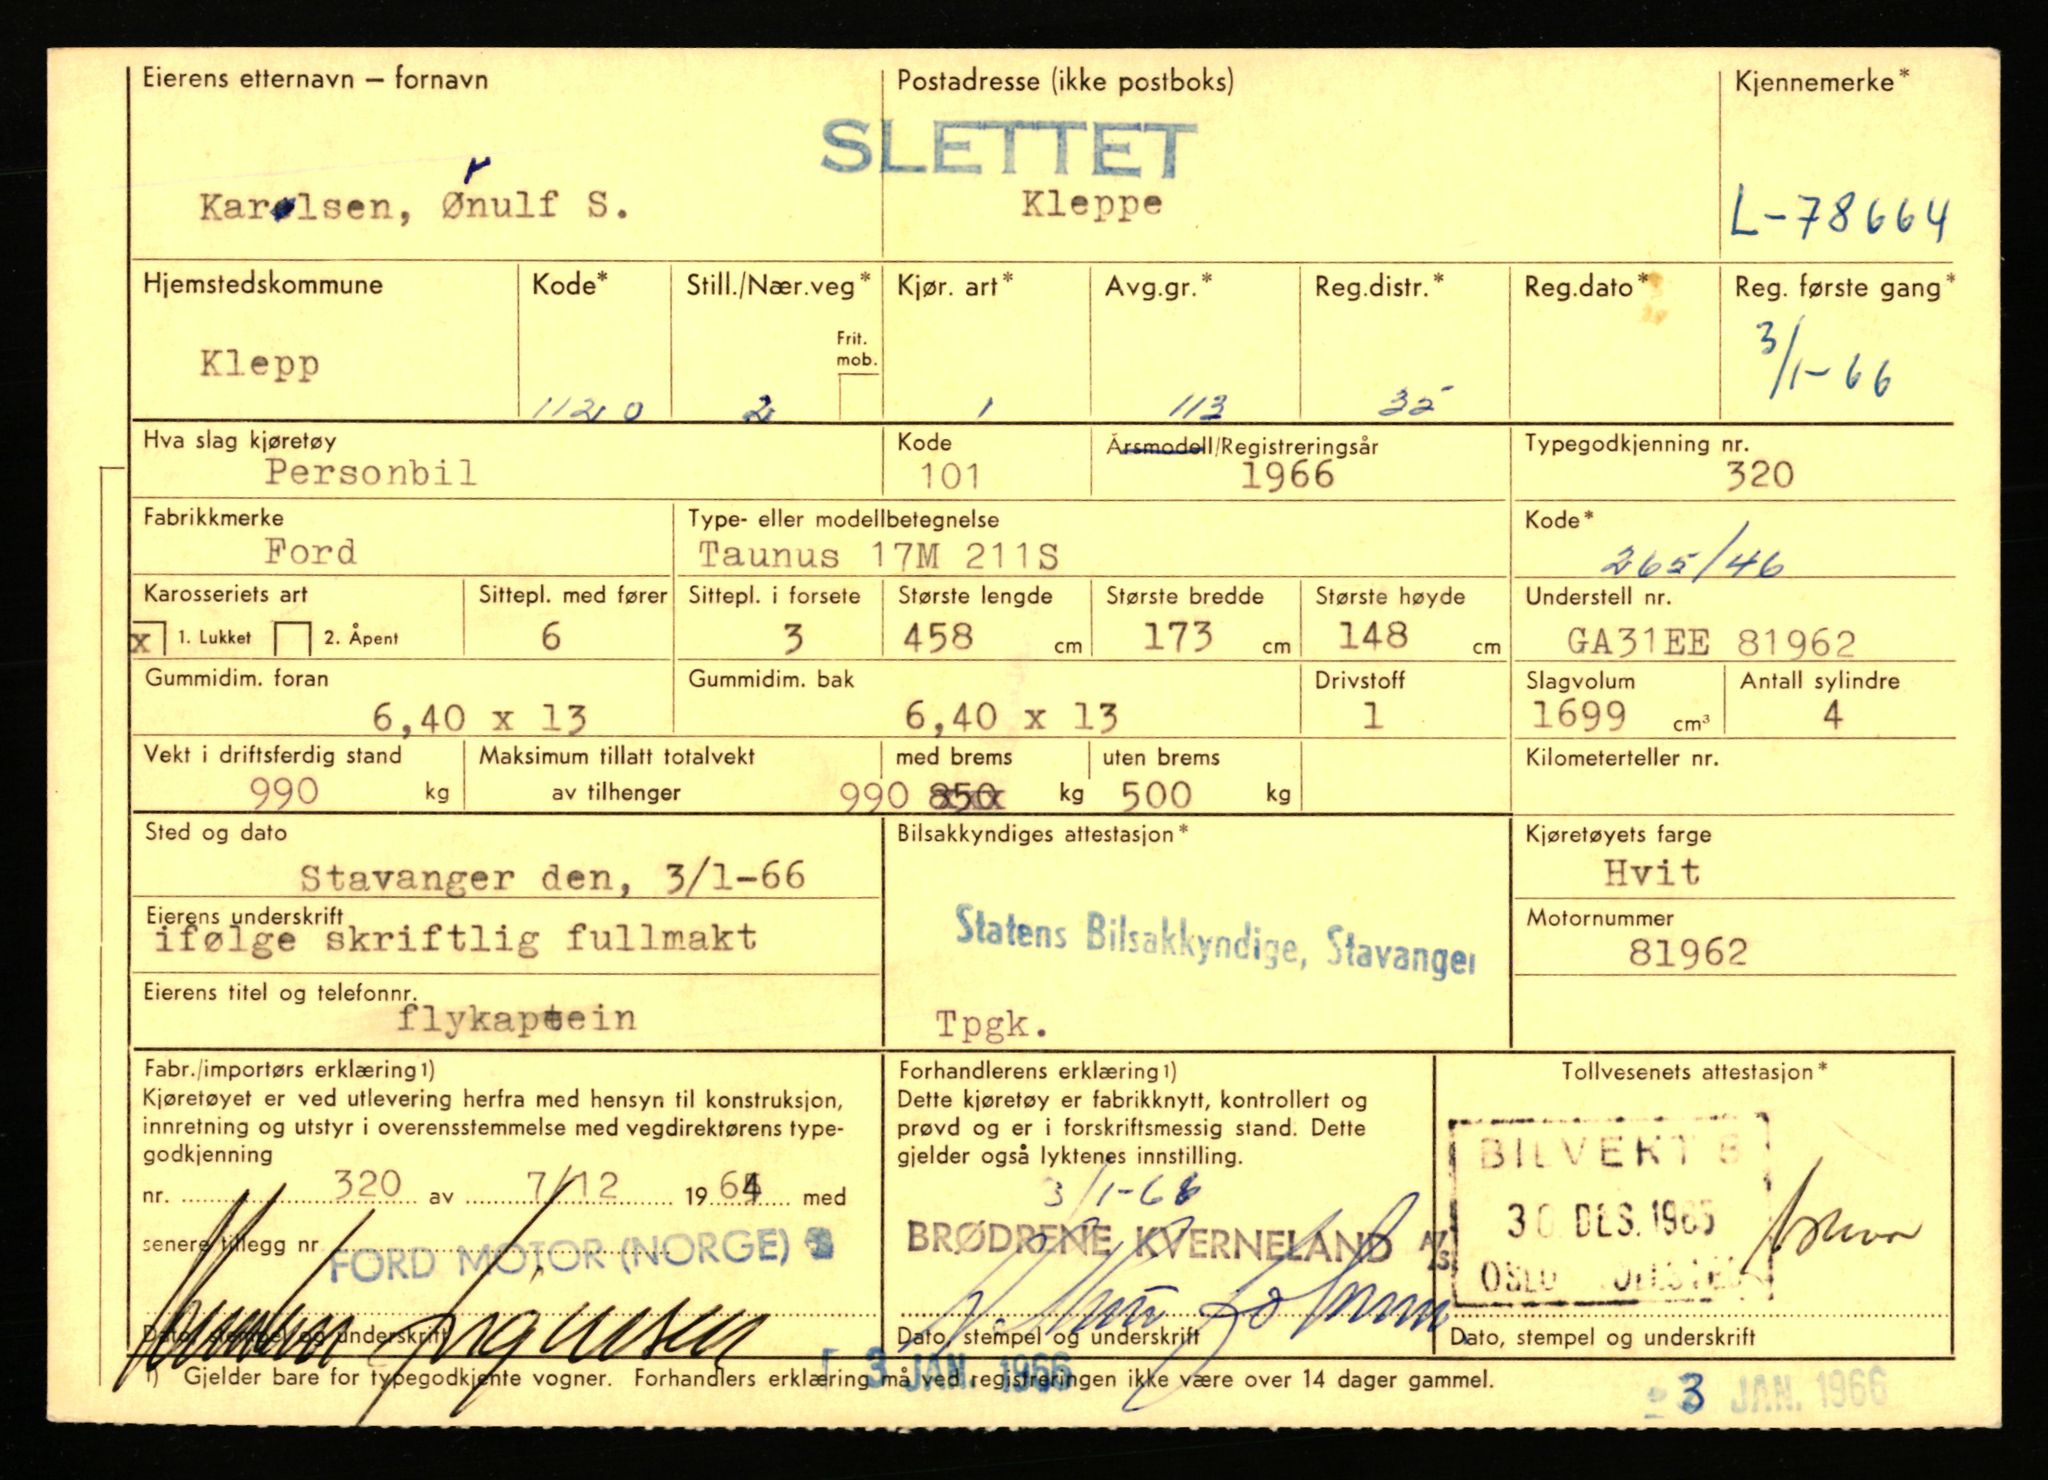 Eierens etternavn – fornavn
Postadresse (ikke postboks)
Kjennemerke*
SLETTET
Karolsen, Ørnulf S.
Kleppe
L-78664
Hjemstedskommune
Kode*
Still./Nær.veg*
Kjør. art*
Avg.gr.*
Reg.distr.*
Reg.dato*
Reg. første gang*
Frit. mob.
Klepp
1120
2
1
113
35
3/1-66
Hva slag kjøretøy
Kode
Årsmodell/Registreringsår
Typegodkjenning nr.
Personbil
101
1966
320
Fabrikkmerke
Type- eller modellbetegnelse
Kode*
Ford
Taunus 17M 211S
265/46
Karosseriets art
Sittepl. med fører
Sittepl. i forsete
Største lengde
Største bredde
Største høyde
Understell nr.
x 1. Lukket
2. Åpent
6
3
458 cm
173 cm
148 cm
GA31EE 81962
Gummidim. foran
Gummidim. bak
Drivstoff
Slagvolum
Antall sylindre
6,40 x 13
6,40 x 13
1
1699 cm³
4
Vekt i driftsferdig stand
Maksimum tillatt totalvekt
med brems
uten brems
Kilometerteller nr.
990 kg
av tilhenger
990 850 kg
500 kg
Sted og dato
Bilsakkyndiges attestasjon*
Kjøretøyets farge
Stavanger den, 3/1-66
Hvit
Eierens underskrift
ifølge skriftlig fullmakt
Statens Bilsakkyndige, Stavanger
Motornummer
81962
Eierens titel og telefonnr.
flykaptein
Tpgk.
Fabr./importørs erklæring 1)
Kjøretøyet er ved utlevering herfra med hensyn til konstruksjon,
innretning og utstyr i overensstemmelse med vegdirektørens type-
godkjenning
nr. 320 av 7/12 1964 med
senere tillegg nr
FORD MOTOR (NORGE)
Dato, stempel og underskrift
Forhandlerens erklæring 1)
Dette kjøretøy er fabrikknytt, kontrollert og
prøvd og er i forskriftsmessig stand. Dette
gjelder også lyktenes innstilling.
3/1-66
BRØDRENE KVERNELAND A/S
Dato, stempel og underskrift
Tollvesenets attestasjon*
BILVERK S
30 DES. 1965
OSLO
Dato, stempel og underskrift
1) Gjelder bare for typegodkjente vogner. Forhandlers erklæring må ved registreringen ikke være over 14 dager gammel.
3 JAN. 1966
3 JAN. 1966